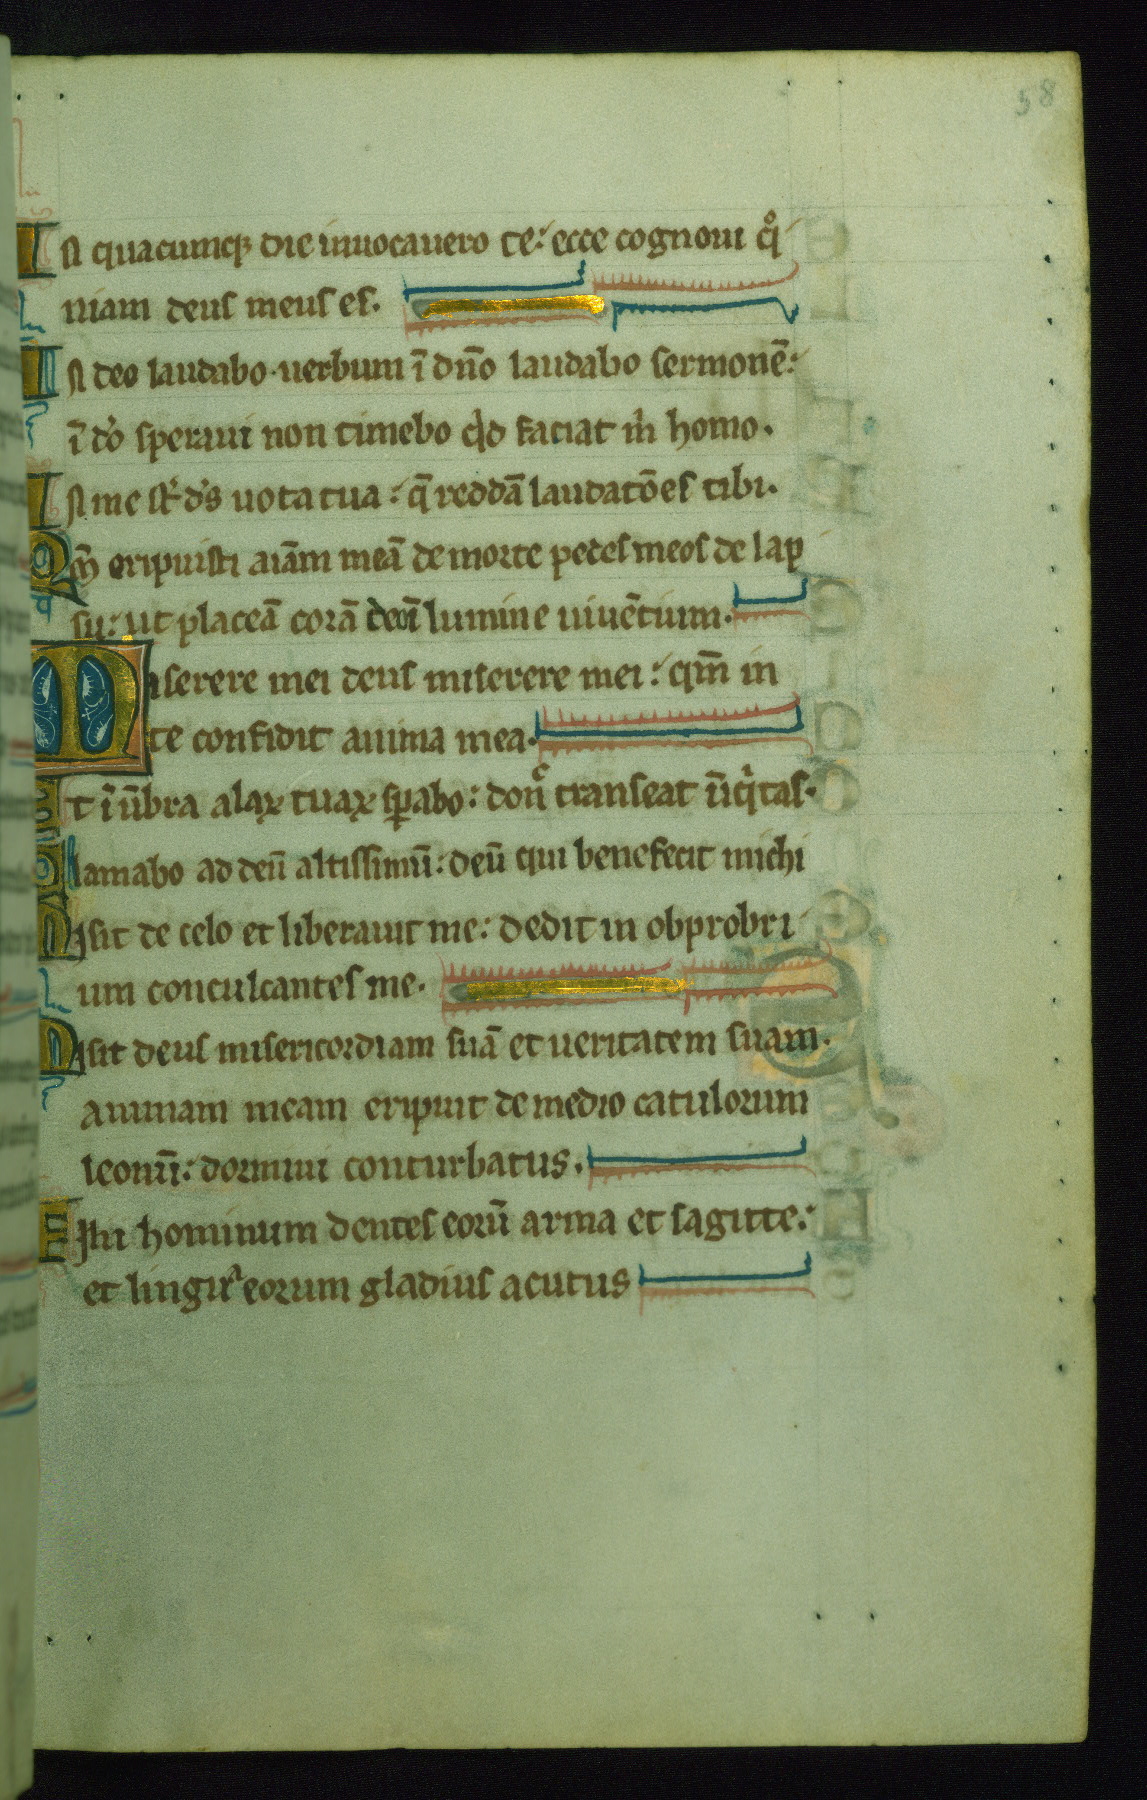 58
In quacumq; die inuocauero te: ecce cognoui qͦ
niam deus meus es.
In deo laudabo uerbum ī dn̄o laudabo sermonē:
ī dō speraui non timebo qͥd faciat m̄ homo.
In me sūt ds̄ uota tua: q̄ reddā laudatōes tibi.
Qm̄ eripuisti aīam meā de morte pedes meos de lap
su: ut placeā corā deo ī lumine uiuētium.
Miserere mei deus miserere mei: qm̄ in
te confidit anima mea.
Et ī ūbra alaꝝ tuaꝝ sꝑabo: donͨ transeat īiqͥtas.
Clamabo ad deū altissimū: deū qui benefecit michi
Misit de celo et liberauit me: dedit in obprobri
um conculcantes me.
Misit deus misericordiam suā et ueritatem suam.
animam meam eripuit de medio catulorum
leonū: dormiui conturbatus.
Filii hominum dentes eorū arma et sagitte:
et linguᵃ eorum gladius acutus